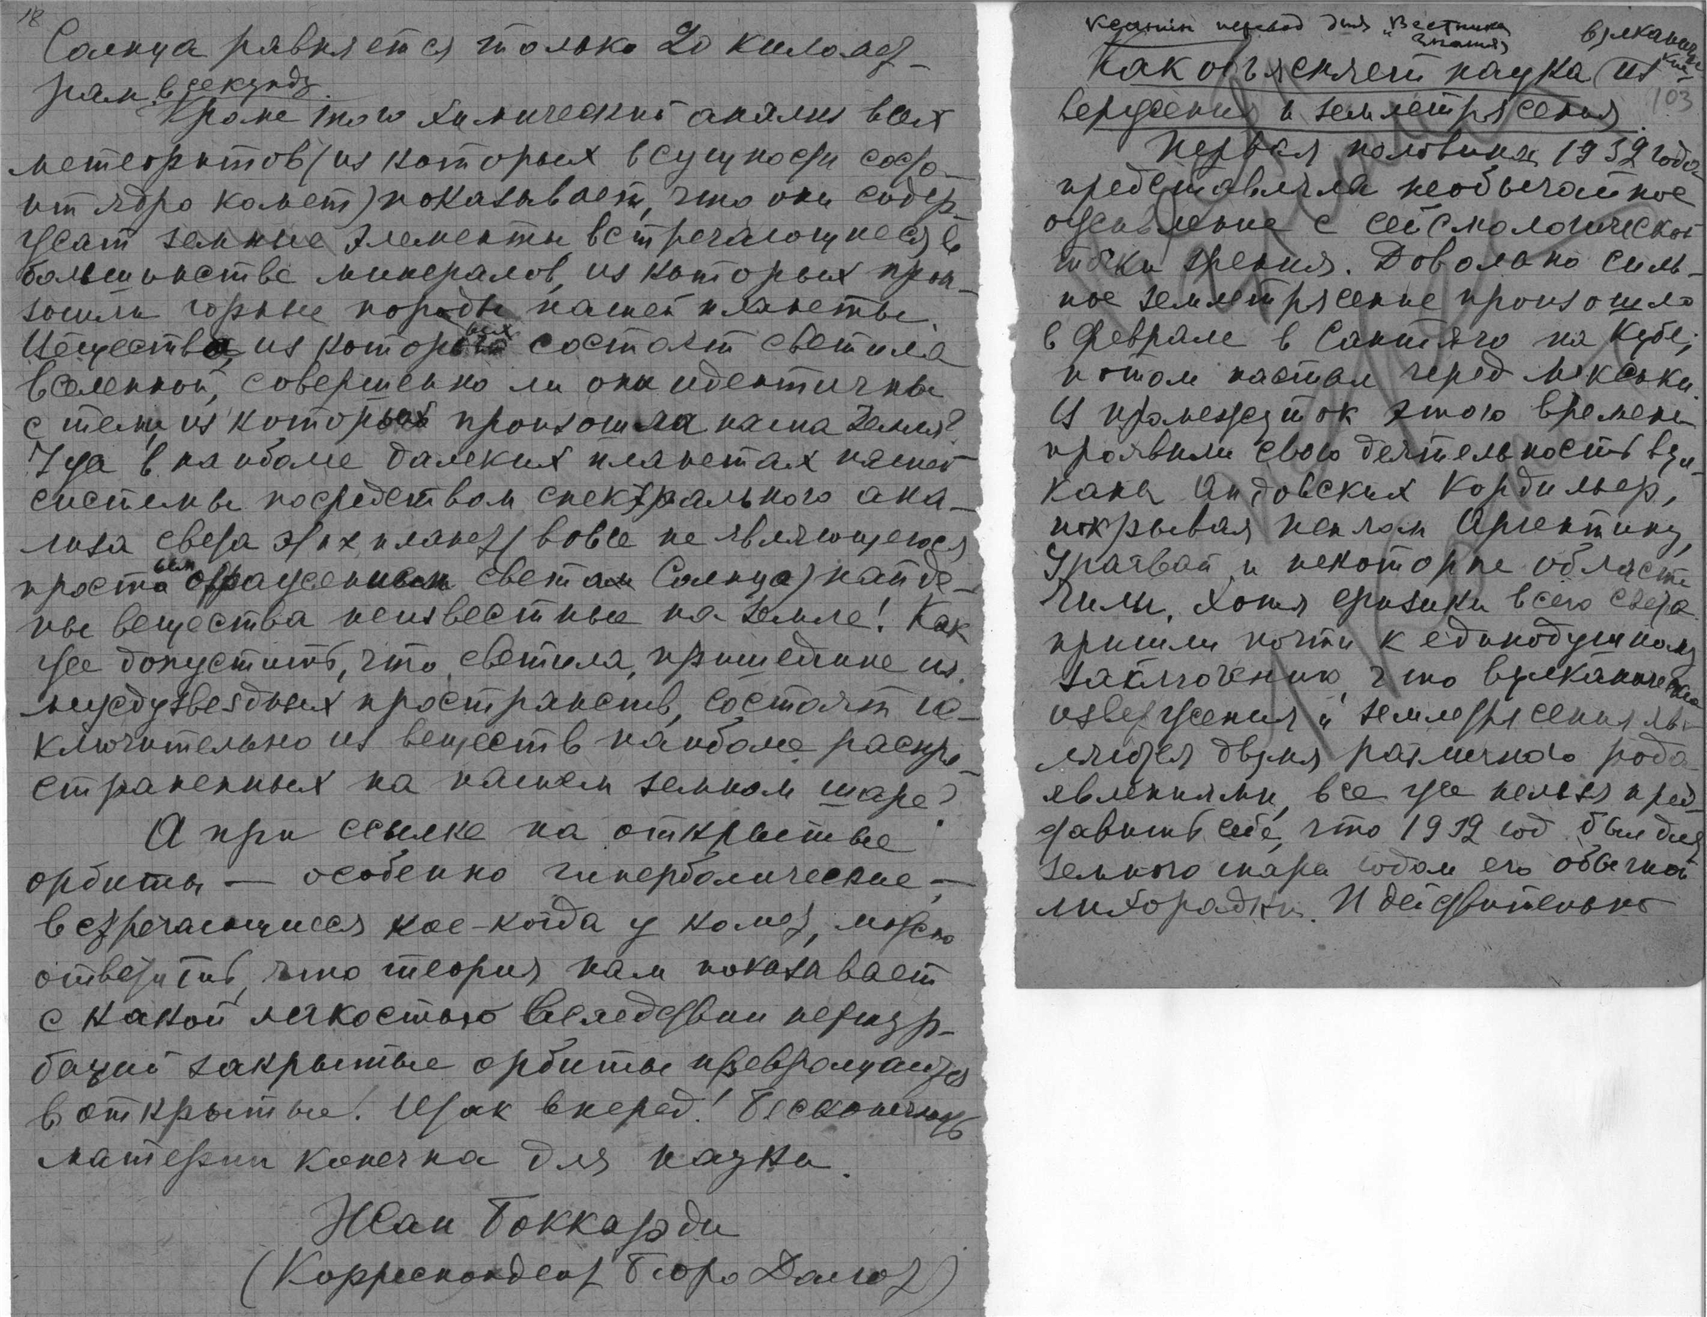 18
Солнца равняется только 20 километ-
рам в секунду.
Кроме того химический анализ всех
метеоритов (из которых в сущности состо-
ит ядро комет) показывает, что они содер-
жат земные элементы встречающиеся в
большинстве минералов, из которых прои-
зошли горные породы нашей планеты.
Вещества, из которых состоят светила
вселенной, совершенно ли они идентичны
с теми, из которых произошла наша Земля?
Уже в наиболее далеких планетах нашей
системы посредством спектрального ана-
лиза света этих планет (вовсе не являющегося
простым отражением света Солнца) найде-
ны вещества неизвестные на Земле! Как
же допустить, что светила, пришедшие из
междузвездных пространств, состоят ис-
ключительно из веществ наиболее распро-
страненных на нашем земном шаре?
А при ссылке на открытые
орбиты — особенно гиперболические, —
встречающиеся кое-когда у комет, можно
ответить, что теория нам показывает
с какой легкостью вследствии пертур-
баций закрытые орбиты превращаются
в открытые! Итак вперед! Бесконечность
материи конечна для науки.
Жан Боккарди
(Корреспондент Бюро Долгот)
перевод для „Вестника
Знания"
Как объясняет наука вулканичес-
кие из-
103
вержения и землетрясения.
Первая половина 1932 года
представляла необычайное
оживление с сейсмологической
точки зрения. Довольно силь-
ное землетрясение произошло
в феврале в Сантьяго на Кубе,
потом настал черед Мексики.
В промежуток этого времени
проявили свою деятельность вул-
каны Андовских Кордильер,
покрывая пеплом Аргентину,
Уругвай и некоторые области
Чили. Хотя физики всего света
пришли почти к единодушному
заключению, что вулканические
извержения и землетрясения яв-
ляются двумя различного рода
явлениями, все же нельзя пред-
ставить себе, что 1932 год был для
земного шара годом его обычной
лихорадки. И действительно